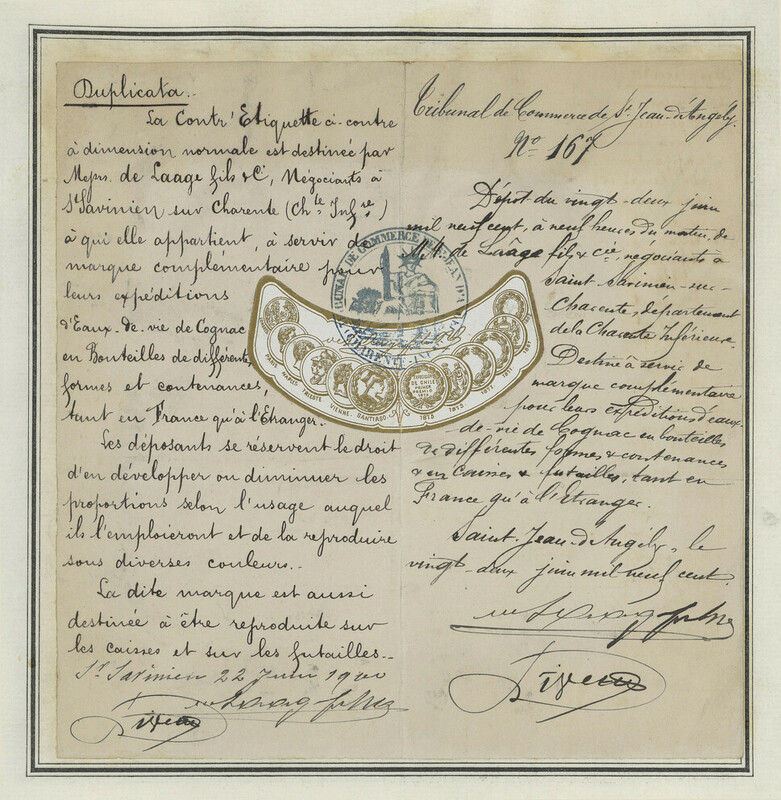 Duplicata.
La Contr' Etiquette ci-contre
à dimension normale est destinée par
Messrs. de Laage fils & Cie, Négociants à
St Savinien sur Charente (Chte Infre)
à qui elle appartient, à servir de
marque complémentaire pour
leurs expéditions
d'Eaux-de-vie de Cognac
en Bouteilles de différentes
formes et contenances,
tant en France qu'à l'Etranger.
Les déposants se réservent le droit
d'en développer ou diminuer les
proportions selon l'usage auquel
ils l'emploieront et de la reproduire
sous diverses couleurs..
La dite marque est aussi
destinée à être reproduite sur
les caisses et sur les futailles..
St Savinien 22 Juin 1900
Tribunal de Commerce de St Jean-d'Angély.
No 167
Dépôt du vingt-deux juin
mil neuf cent, à neuf heures du matin, de
MM de Laage fils & cie, négociants à
Saint Savinien-sur-
Charente, département
de la Charente Inférieure.
Destiné à servir de
marque complémentaire
pour leurs expéditions d'eaux-
de-vie de Cognac en bouteilles
de différentes formes & contenances
& en caisses & futailles, tant en
France qu'à l'Etranger.
Saint Jean-d'Angély, le
vingt-deux juin mil neuf cent.
TRIBUNAL DE COMMERCE DE ST JEAN D'A
CHARENTE-INF
PARIS NAPLES TRIESTE VIENNE. SANTIAGO.
EXPOSICION DE CHILE PRIMER PREMIO
1875